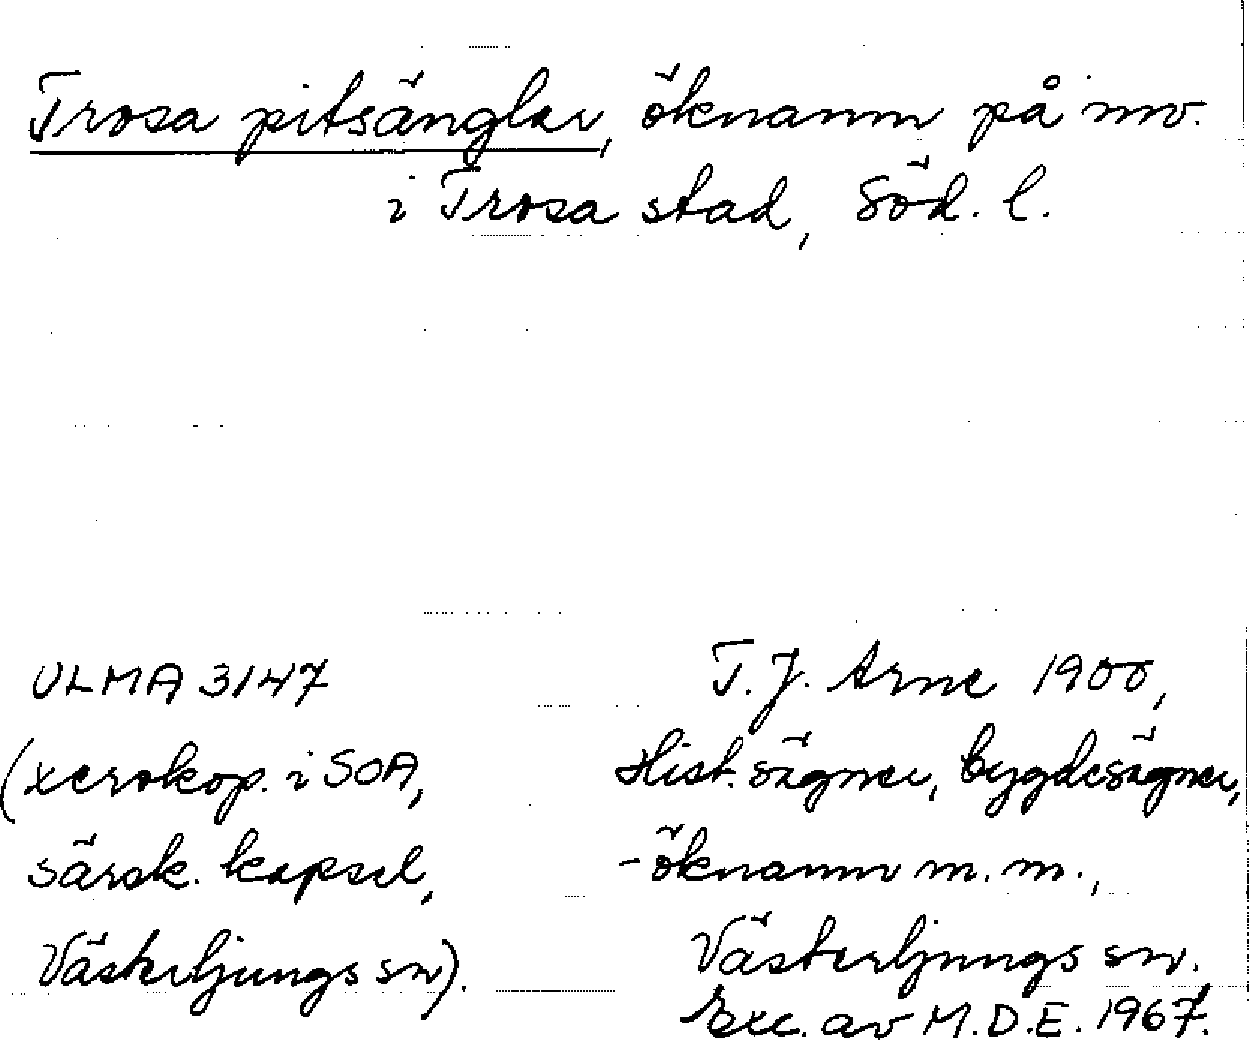 Trosa pitsänglar, öknamn på inv.
i Trosa stad, Söd. l.
ULMA 3147
(xerokop. i SOA,
särsk. kapsel,
Västerljungs sn).
T. J. Arne 1900,
Hist. sägner, bygdesägner,
- öknamn m. m.,
Västerljungs sn.
Exc. av M.D.E. 1967.